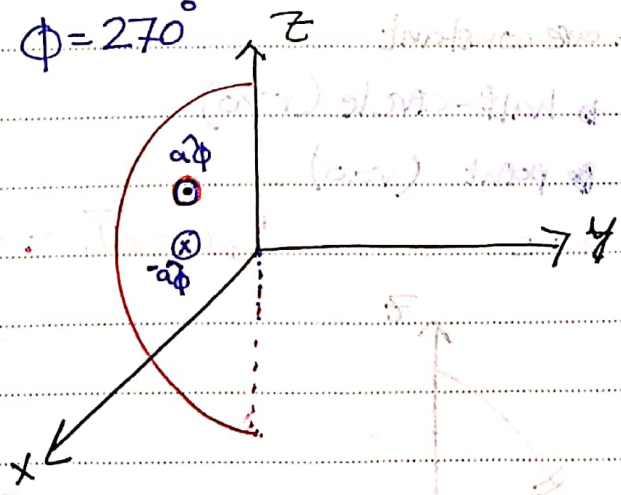 ϕ = 270°
z
âϕ
-âϕ
y
x